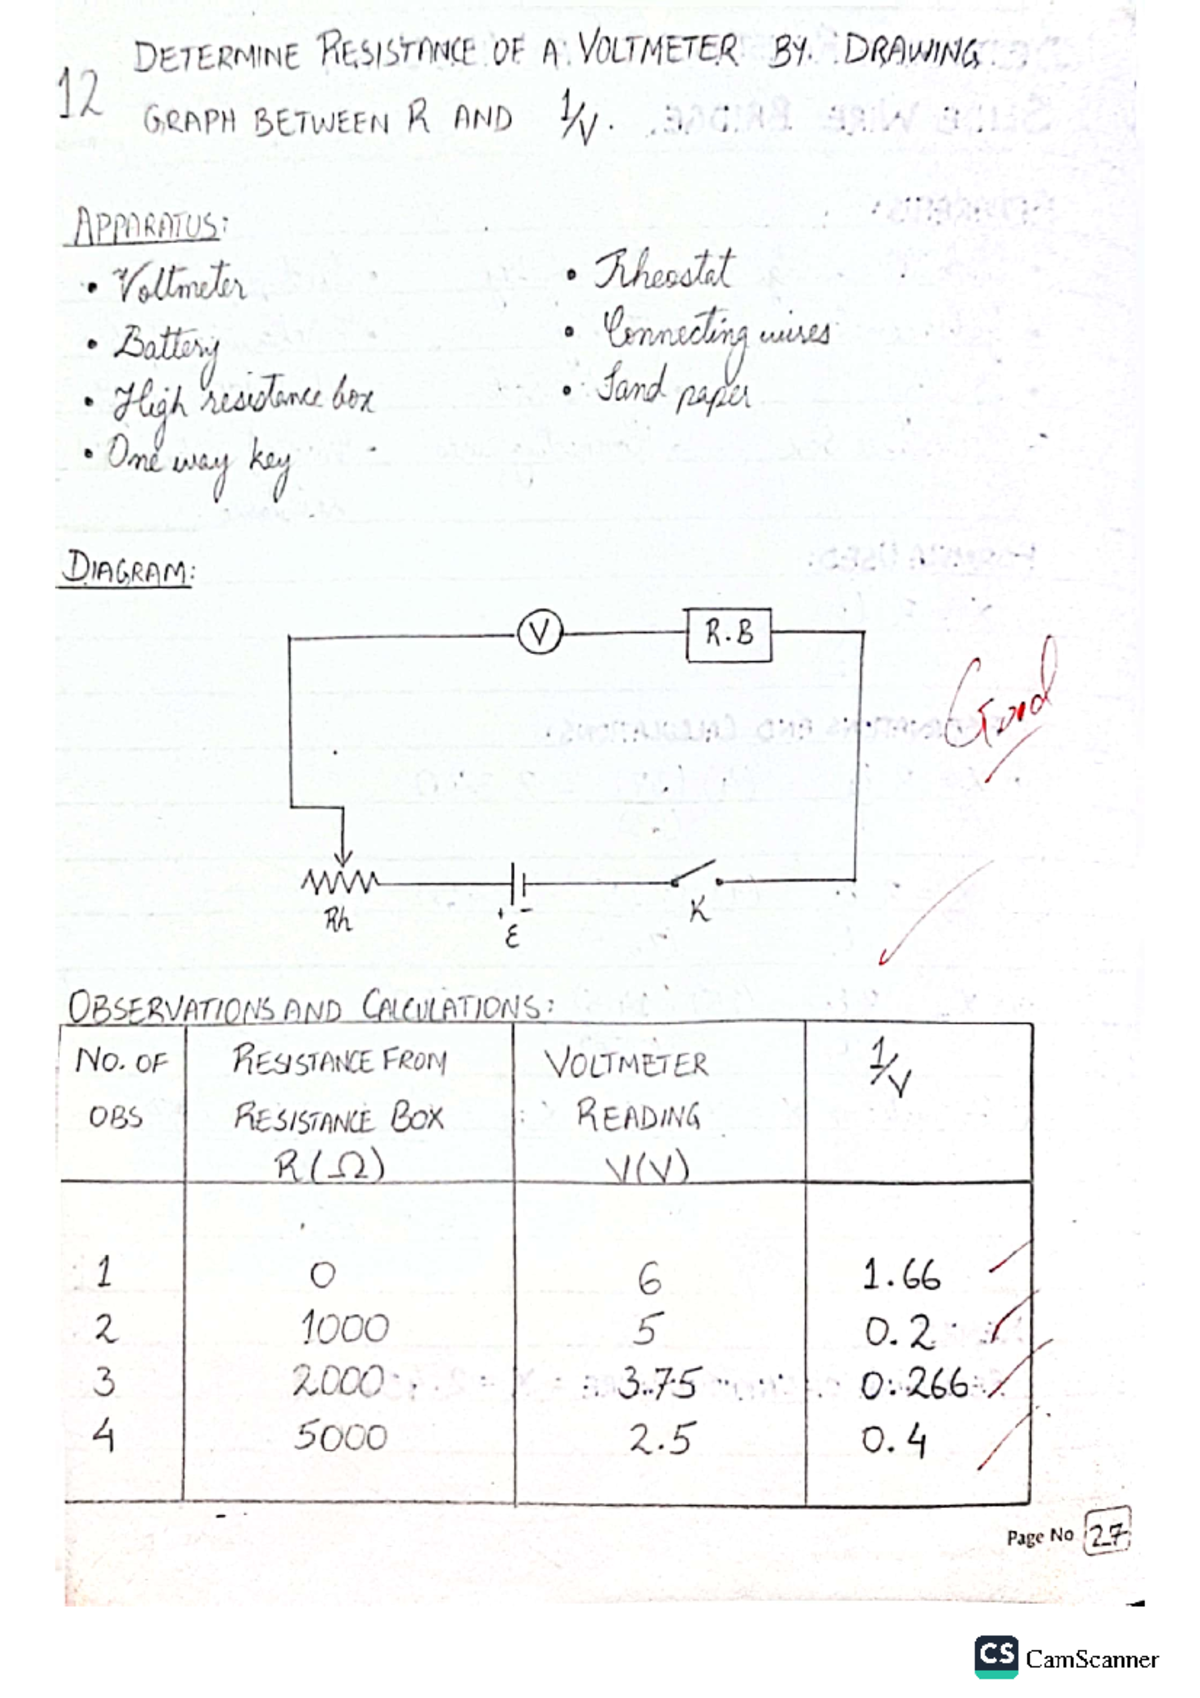 12
DETERMINE RESISTANCE OF A VOLTMETER BY DRAWING
GRAPH BETWEEN R AND 1/V.
APPARATUS:
• Voltmeter
• Battery
• High resistance box
• One way key
• Rheostat
• Connecting wires
• Sand paper
DIAGRAM:
V
R.B
Good
Rh
+ -
ε
K
OBSERVATIONS AND CALCULATIONS:
NO. OF OBS
RESISTANCE FROM RESISTANCE BOX R(Ω)
VOLTMETER READING V(V)
1/V
1 0 6 1.66
2 1000 5 0.2
3 2000 3.75 0.266
4 5000 2.5 0.4
Page No 27
CS CamScanner